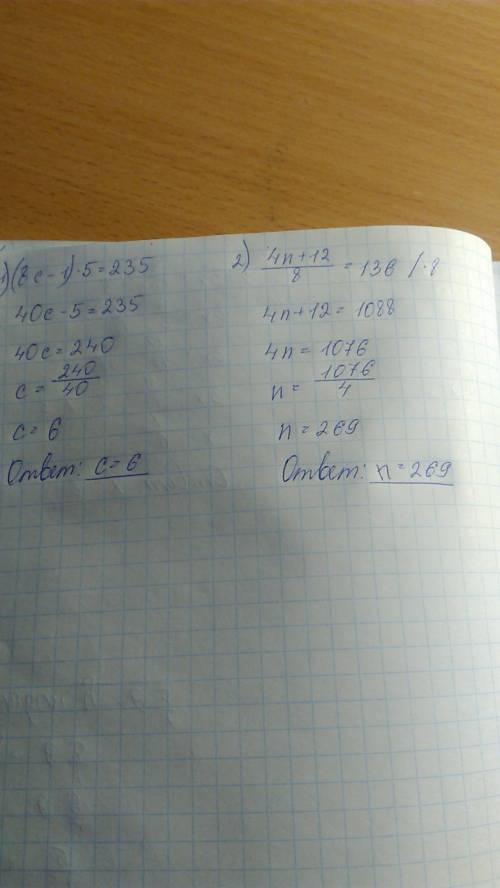 1) (8c - 1)·5 = 235
40c - 5 = 235
40c = 240
c = 240/40
c = 6
Ответ: c = 6
2) (4n+12)/8 = 136 / ·8
4n+12 = 1088
4n = 1076
n = 1076/4
n = 269
Ответ: n = 269